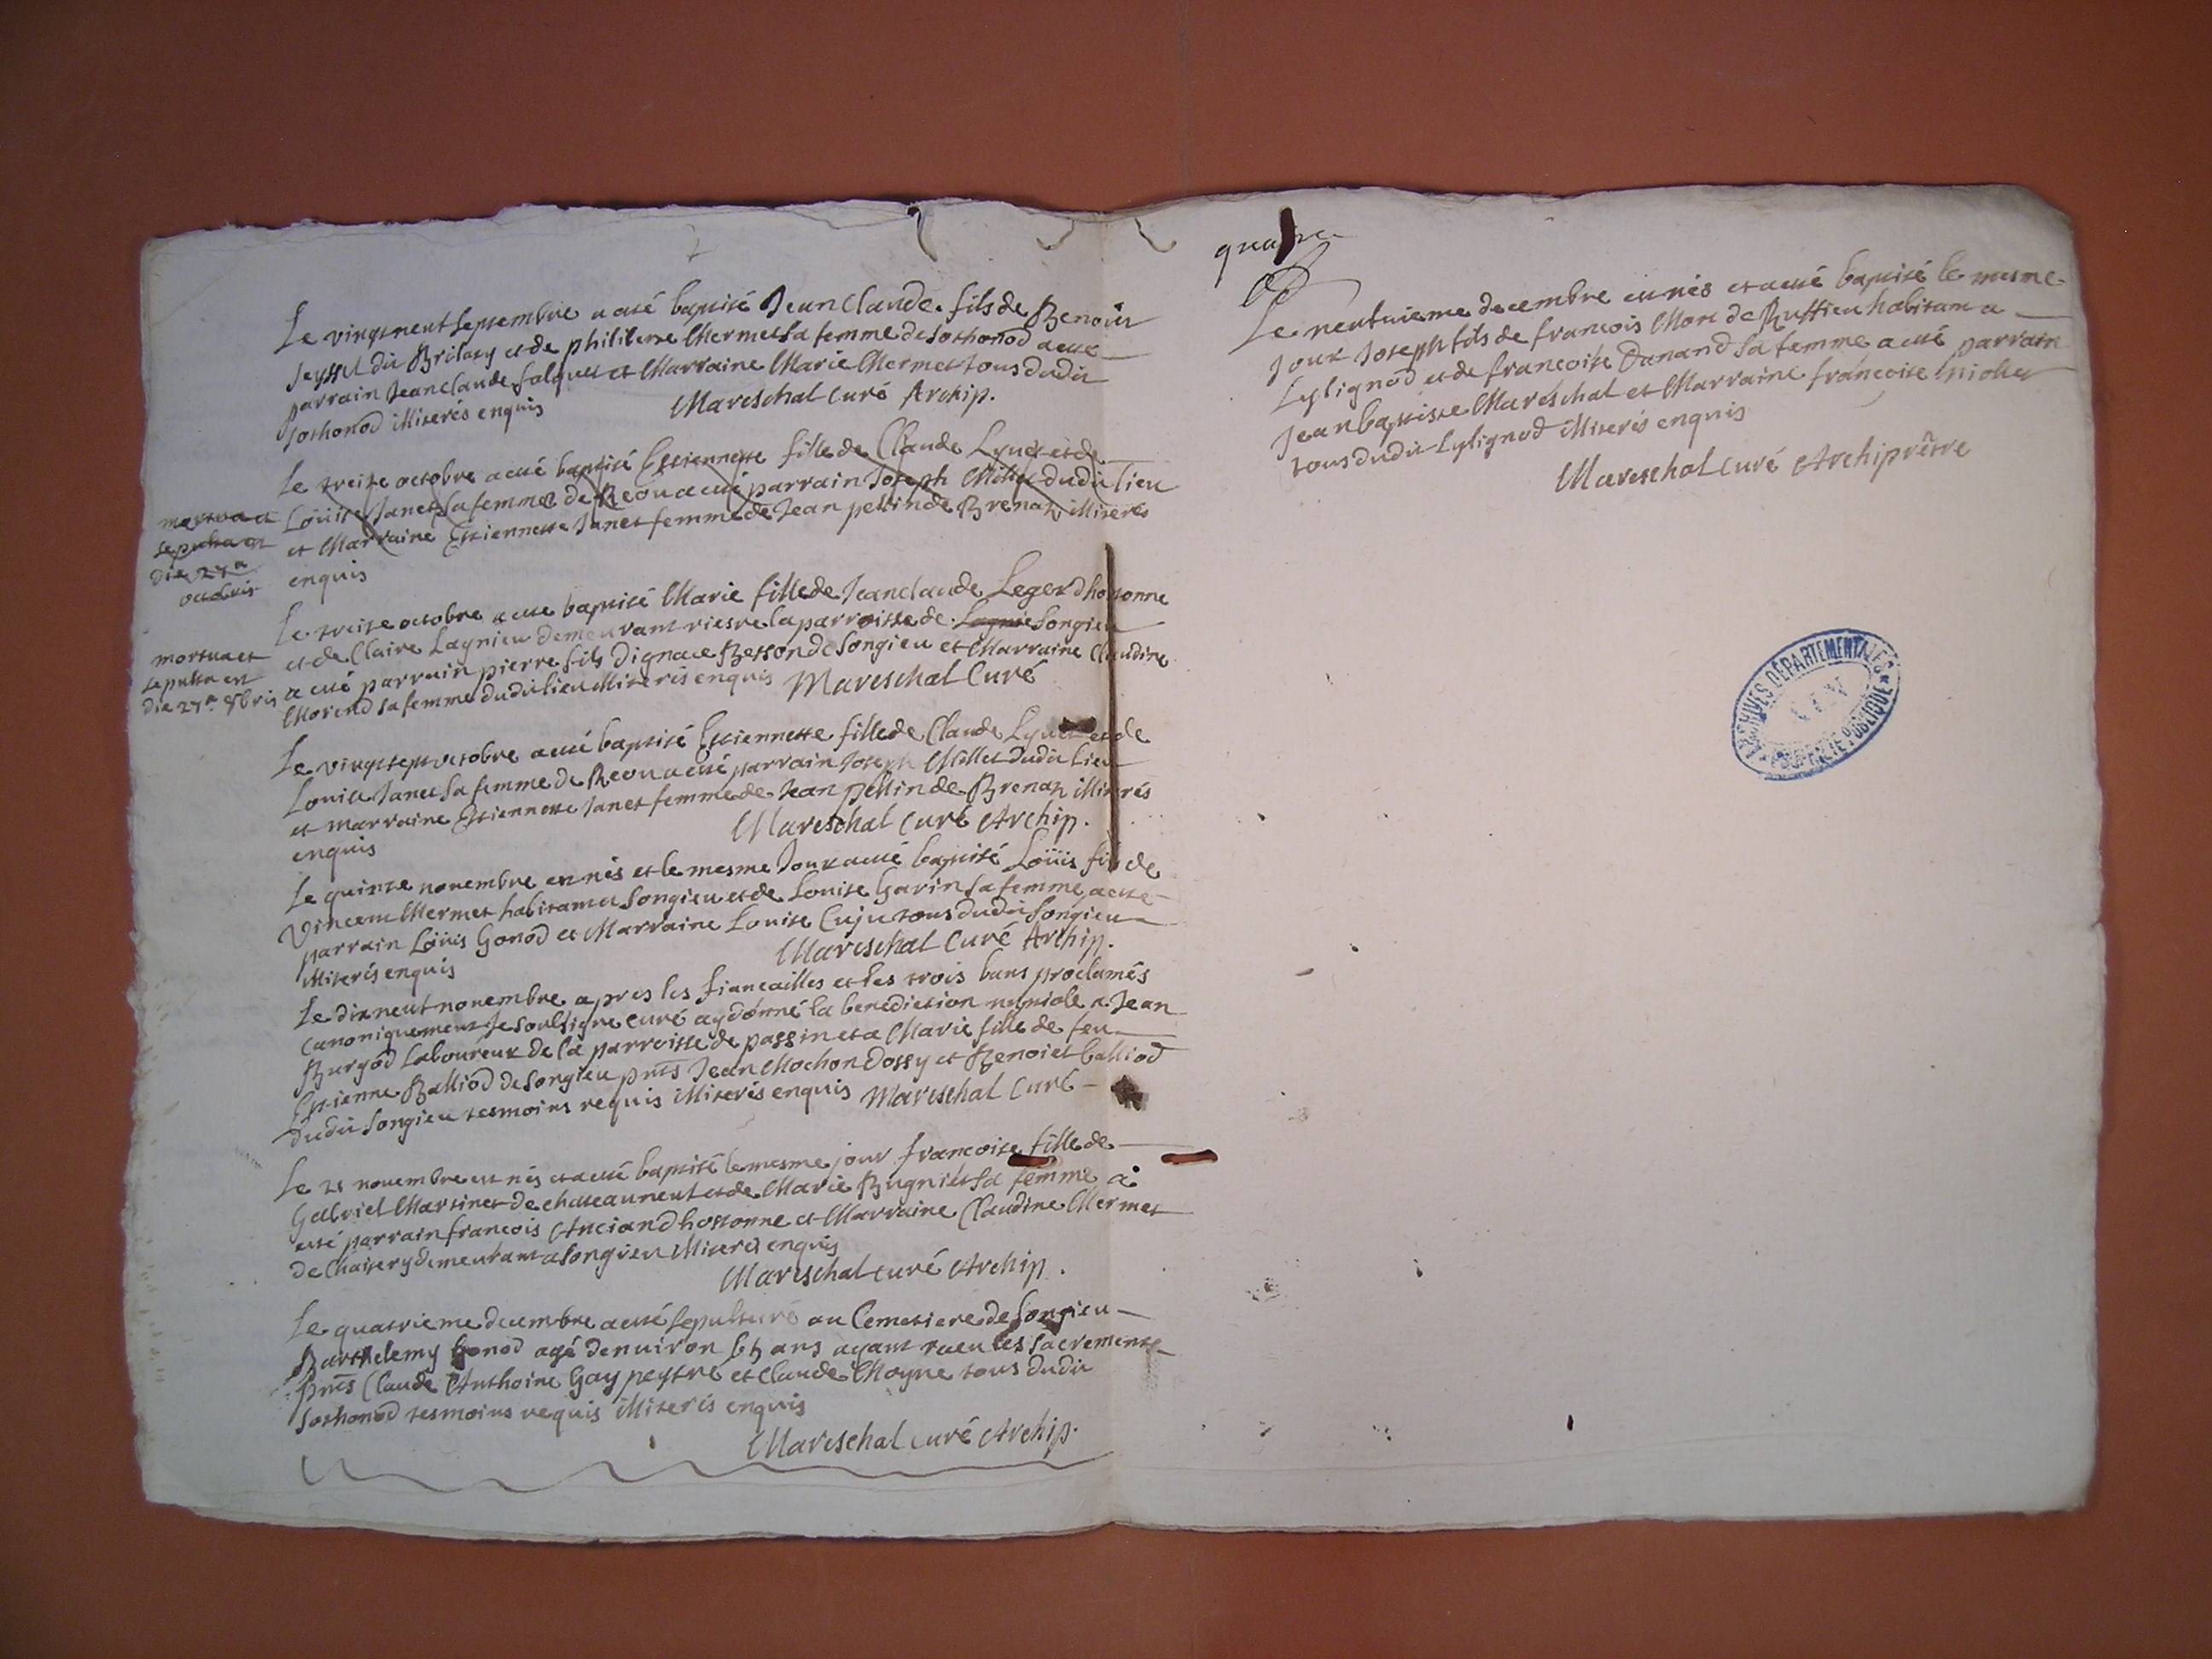 Le vingtneuf septembre a eté baptisé Jean Claude fils de Benoist
seyssel du Brilaty et de philiberte Mermet sa femme de Sothonod a esté
parrain Jean claude falquet et Marraine Marie Mermet tous dudit
Sothonod illiterés enquis
Mareschal curé Archip.
Le treize octobre a esté baptisé Estiennette fille de Claude Lyuet et de
Louise Janet sa femme de Reou a esté parrain Joseph Millet dudit lieu
et Marraine Estiennette Janet femme de Jean pellin de Brenaz illiterés
enquis
mortua et
sepulta est
die 27a
octobris
Le treize octobre a esté baptisé Marie fille de Jean claude Leger dhotonne
et de Claire Lagnieu demeurant riesre la parroisse de Songieu
a esté parrain pierre fils dignace Besson de Songieu et Marraine Claudine
Morend sa femme dudit lieu illiterés enquis Mareschal Curé
mortua et
sepulta est
die 27a 8bris
Le vingtsept octobre a esté baptisé Estiennette fille de Claude Lyuet et de
Louise Janet sa femme de Reou a esté parrain Joseph Millet dudit lieu
et marraine Estiennette Janet femme de Jean pellin de Brenaz illiterés
enquis
Mareschal curé Archip.
Le quinze nouembre est nés et le mesme Jour a esté baptisé Loüis fils de
Vincent Mermet habitant a Songieu et de Louise Gavin sa femme a esté
parrain Loüis Gonod et Marraine Louise Cuju tous dudit Songieu
illiterés enquis
Mareschal Curé Archip.
Le dixneuf nouembre apres les fiancailles et les trois bans proclamés
canoniquement Je soussigné curé ay donné la benediction nuptiale a Jean
Burgod Laboureur de la parroisse de passin et a Marie fille de feu
Estienne Balliod de Songieu pnts Jean Mochon dossy et Benoist balliod
dudit Songieu tesmoins requis illiterés enquis Mareschal Curé
Le 21 nouembre est nés et a esté baptisé le mesme jour francoise fille de
Gabriel Martinet de chateauneuf et de Marie Bugniet sa femme a
esté parrain francois Ancian dhostonne et Marraine Claudine Mermet
de Chaisery demeurant a Songieu illiterés enquis
Mareschal curé Archip.
Le quatrieme decembre a esté Sepulturé au Cemetiere de Songieu
Barthelemy Gonod agé denuiron 65 ans ayant receu les sacrements
pnts Claude Anthoine Gay peytre et Claude Moyne tous dudit
Sothonod tesmoins requis illiterés enquis
Mareschal curé Archip.
quatre
Le neufuieme decembre est nés et a esté baptisé le mesme
Jour Joseph fils de francois More de Ruffieu habitant a
Lylignod et de francoise Danand sa femme a esté parrain
Jean baptiste Mareschal et Marraine francoise niollet
tous dudit Lylignod illiterés enquis
Mareschal curé Archiprêtre
ARCHIVES DÉPARTEMENTALES
DE L'AIN
PROPRIÉTÉ PUBLIQUE